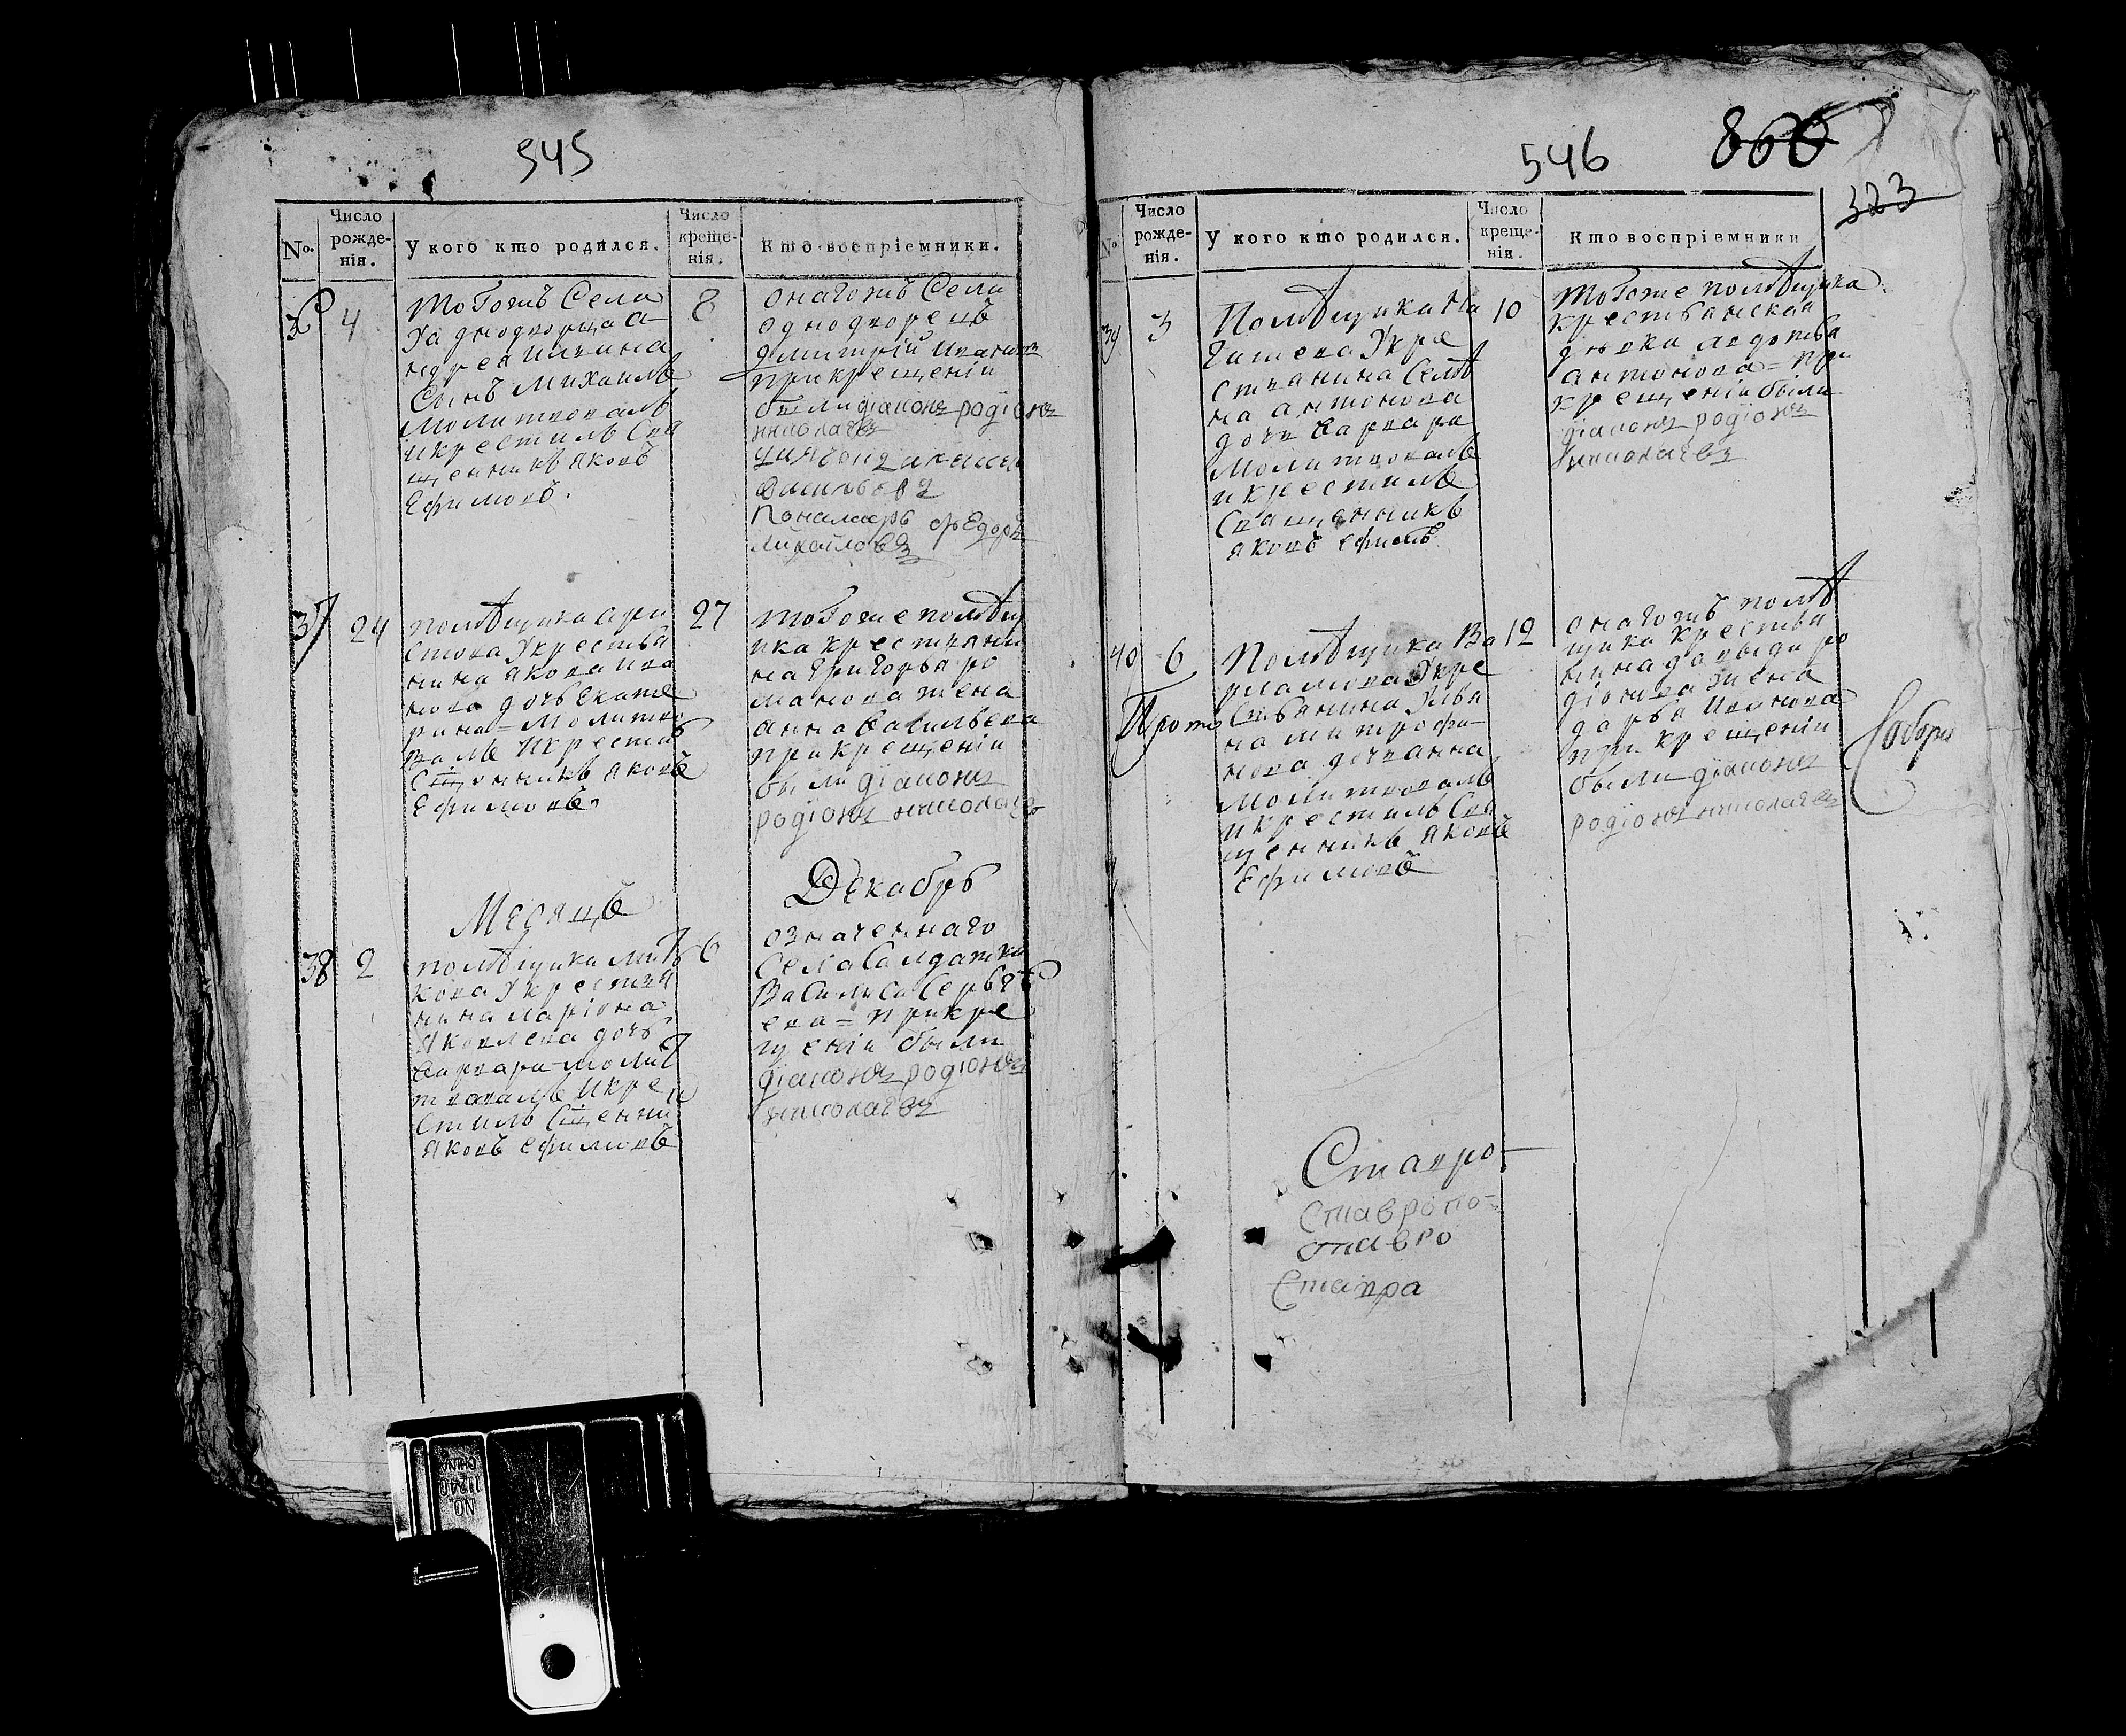 545
No.
Число рожде-нія.
У кого кто родился.
Число креще-нія.
Кто воспріемники.
36
4
8
Тогожъ Села
У аднодворца а-
ндрея
Сынъ Михаилъ
Молитвовалъ
и крестилъ Свя
щенникъ Яковъ
Ефимовъ.
онагожъ Села
однодворецъ
дмитрій Ивановъ
при крещеніи
были діаконъ родіонъ
николаевъ
Васильевъ
Пономарь Федоръ
михайловъ
37
24
27
помѣщика
стова У крестья
нина Якова Ива
нова дочь Екате
рина = Молитво
валъ И крестилъ
Сщенникъ Яковъ
Ефимовъ.
тогоже помѣщ
ика крестьяни
на Григорья ро
манова жена
анна Васильева
при крещеніи
были діаконъ
родіонъ николаевъ
Месяцъ
Декабрь
38
2
6
помѣщика
кова У крестья
нина ларіона
Яковлева дочь
варвара молит
твовалъ И кре
стилъ Сщенник
Яковъ ефимовъ
означеннаго
Села Салдатка
Василиса Сергѣ
ева = при кре
щеніи были
діаконъ родіонъ
николаевъ
546
866
323
No.
Число рожде-нія.
У кого кто родился.
Число креще-нія.
Кто воспріемники
39
3
10
Помѣщика На
гишева У кре
стьянина Селѣ
на антонова
дочь варвара
Молитвовалъ
и крестилъ
Священникъ
Яковъ ефимовъ
Тогоже помѣщика
крестьянская
дѣвка авдотья
антонова = при
крещеніи были
діаконъ родіонъ
николаевъ
40
6
12
Помѣщика Ва
рламова У кре
стьянина Улья
на митрофа-
нова дочь анна
Молитвовалъ
и крестилъ Свя
щенникъ Яковъ
Ефимовъ
онагожъ помѣ
щика крестья
нина давыда ро
діонова жена
дарья Иванова
при крещеніи
были діаконъ
родіонъ николаевъ
Прото
Собори
Ставро-
Ставропо-
тавро
Ставра